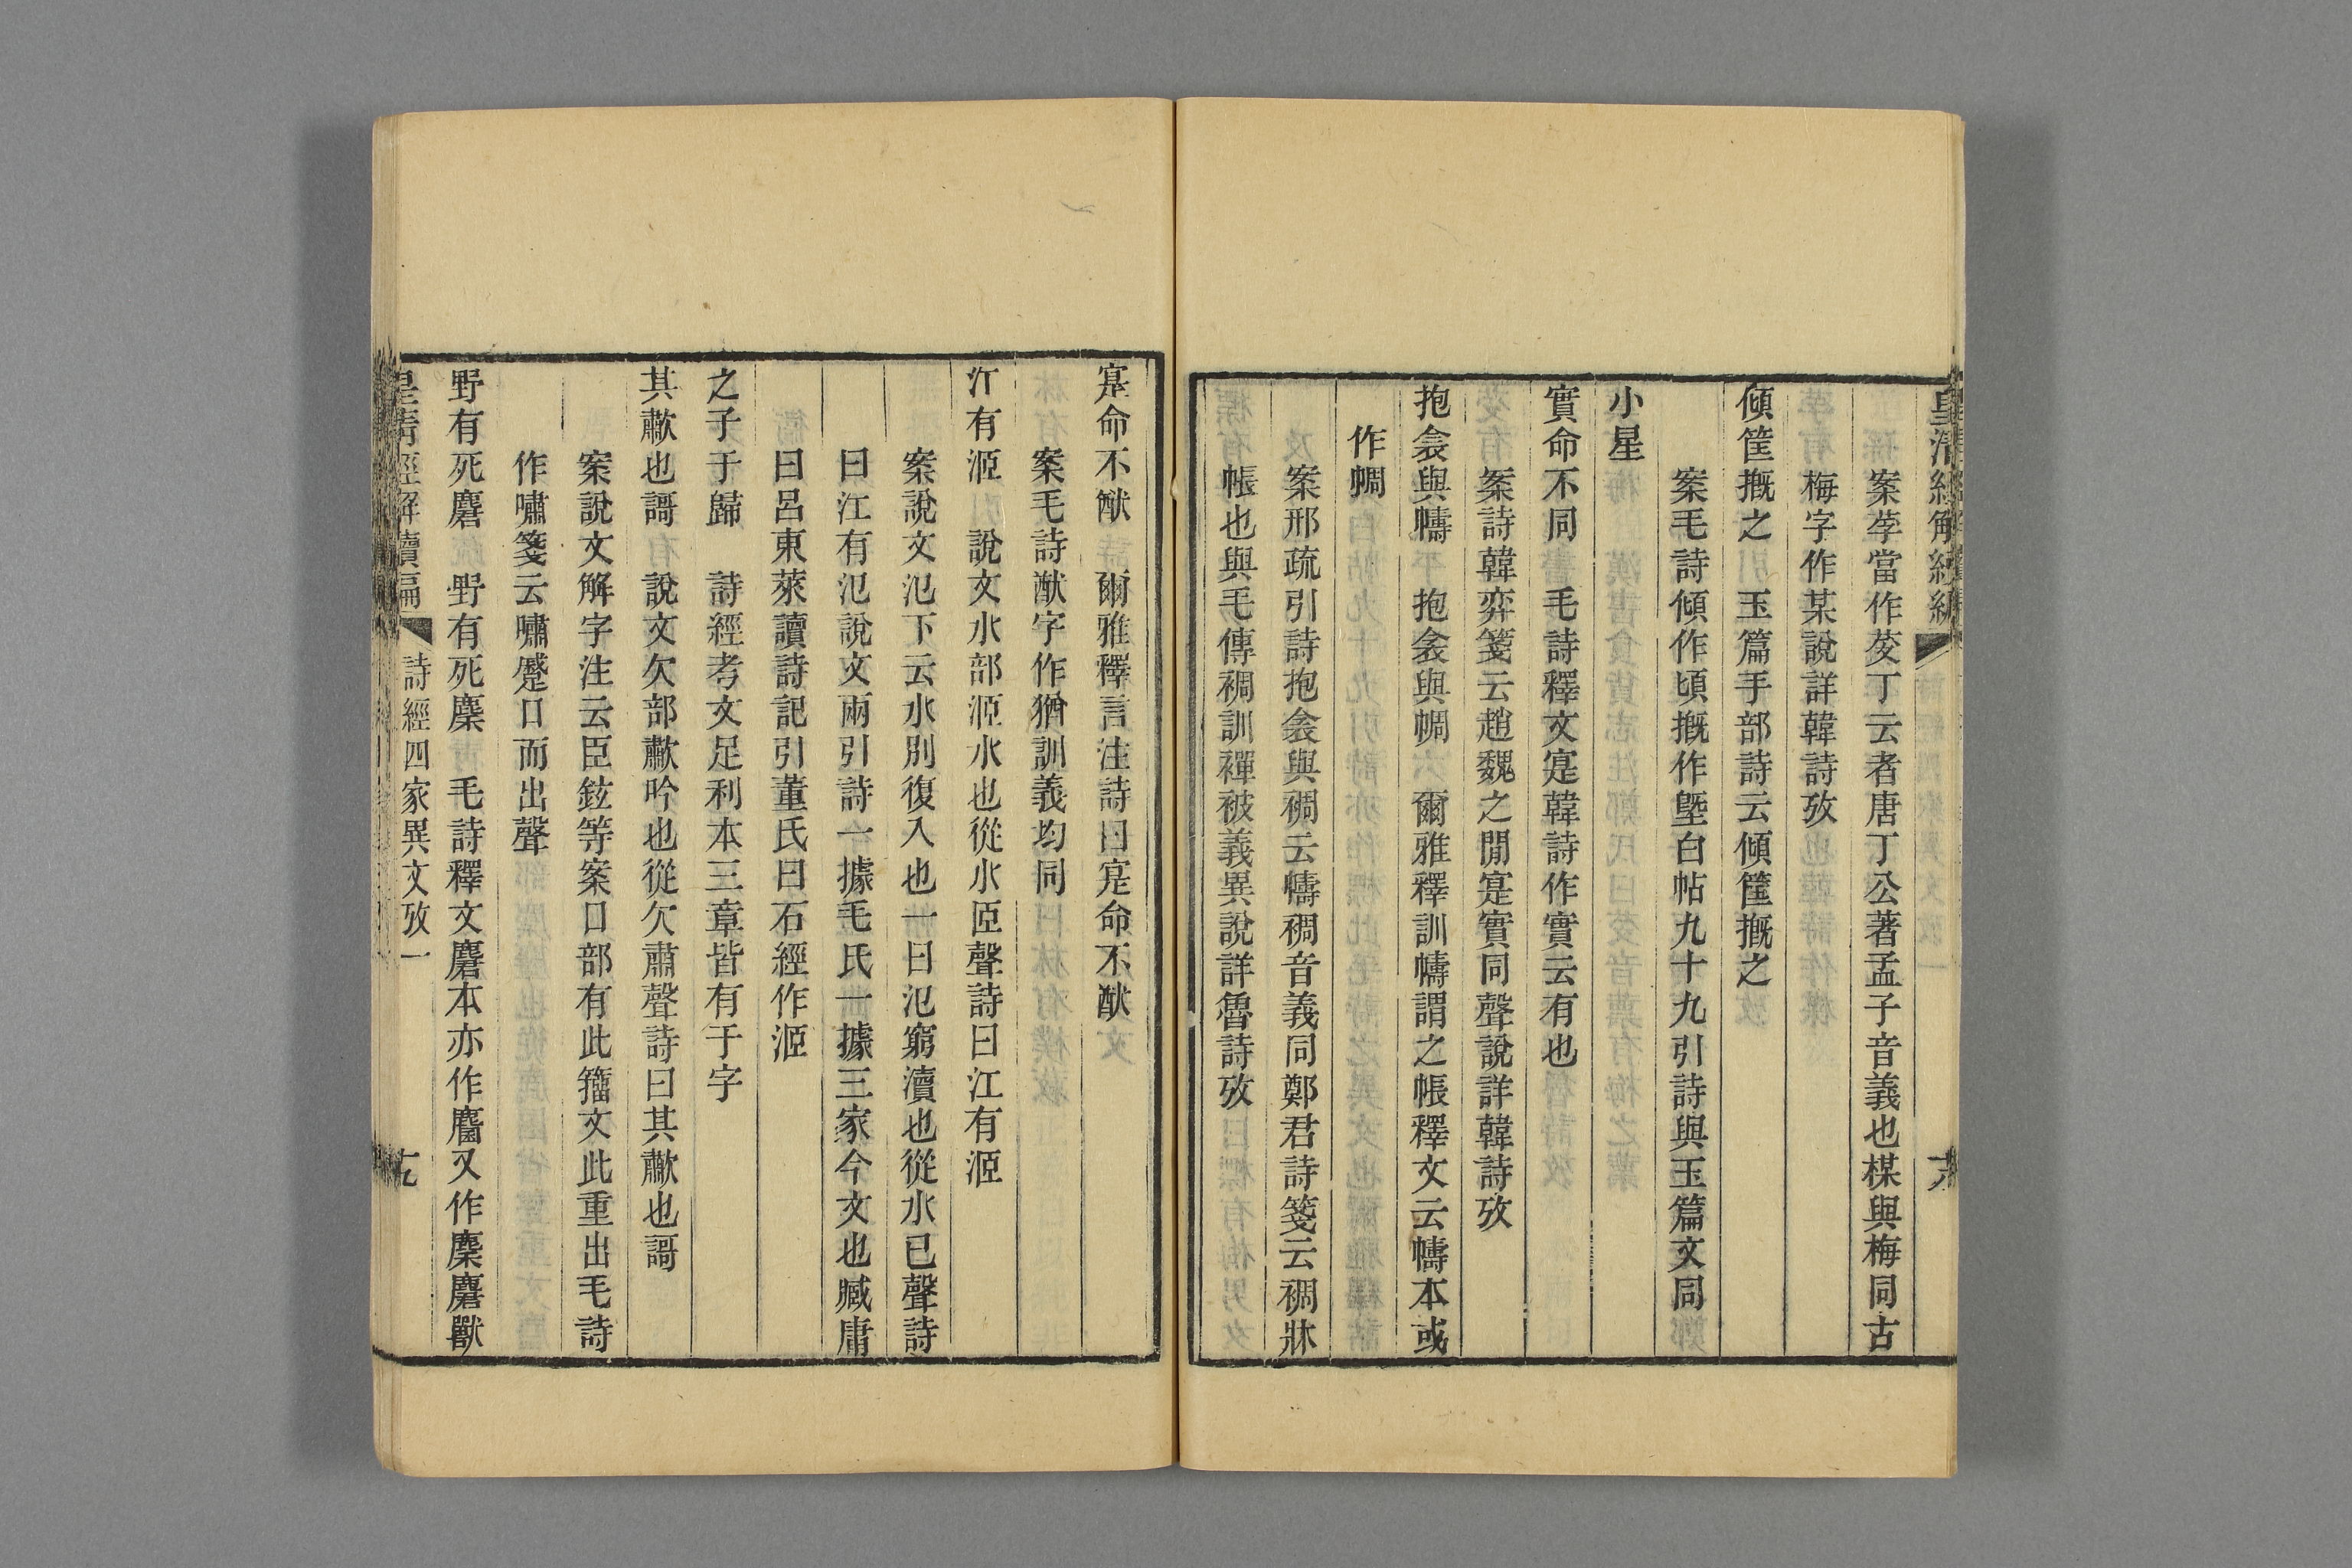 皇清經解續編
案莩當作荽丁云者唐丁公著孟子音義也楳與梅同古
梅字作某說詳韓詩攷
傾筐摡之　玉篇手部詩云傾筐摡之
案毛詩傾作頃摡作墍白帖九十九引詩與玉篇文同
小星
實命不同　毛詩釋文寔韓詩作實云有也
案詩韓弈箋云趙魏之閒寔實同聲說詳韓詩攷
抱衾與幬　抱衾與幬　爾雅釋訓幬謂之帳釋文云幬本或
作㡏
案邢疏引詩抱衾與裯云幬裯音義同鄭君詩箋云裯牀
帳也與毛傳裯訓襌被義異說詳魯詩攷
寔命不猷　爾雅釋言注詩曰寔命不猷
案毛詩猷字作猶訓義均同
江有洍　說文水部洍水也從水𦣞聲詩曰江有洍
案說文氾下云水別復入也一曰氾窮瀆也從水已聲詩
曰江有氾說文兩引詩一據毛氏一據三家今文也臧庸
曰呂東萊讀詩記引董氏曰石經作洍
之子于歸　詩經考文足利本三章皆有于字
其歗也謌　說文欠部歗吟也從欠肅聲詩曰其歗也謌
案說文解字注云臣鉉等案口部有此籀文此重出毛詩
作嘯箋云嘯蹙口而出聲
野有死麏　野有死麇　毛詩釋文麏本亦作麕又作麇麏獸
皇清經解續編　詩經四家異文攷一　十九